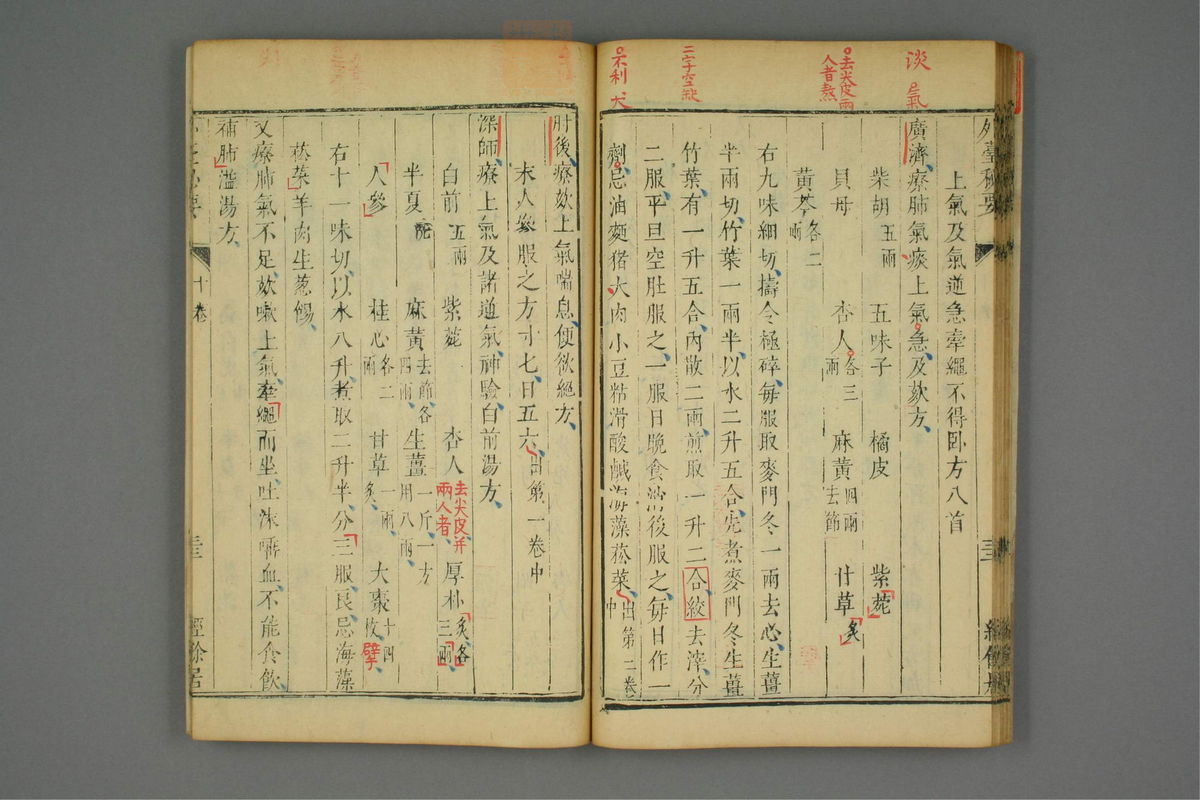 談 氣
去尖皮兩
人者熬
二字空缺
不利 犬
外臺秘要
上氣及氣逆急牽繩不得臥方八首
廣濟療肺氣痰上氣急及欬方
柴胡五兩 五味子 橘皮 紫菀
貝母 杏人 麻黃四兩去節 甘草炙
黃芩各二兩 各三兩
右九味細切擣令極碎每服取麥門冬一兩去心生薑
半兩切竹葉一兩半以水二升五合先煮麥門冬生薑
竹葉有一升五合內散二兩煎取一升二合絞去滓分
二服平旦空肚服之一服日晚食消後服之每日作一
劑忌油麵猪犬肉小豆粘滑酸鹹海藻菘菜出第二卷中
肘後療欬上氣喘息便欲絕方
末人參服之方寸匕日五六出第一卷中
深師療上氣及諸逆氣神驗白前湯方
白前五兩 紫菀 杏人去尖皮并兩人者 厚朴炙各三兩
半夏洗 麻黃去節各四兩 生薑一斤一方用八兩
人參 桂心各二兩 甘草一兩炙 大棗十四枚擘
右十一味切以水八升煮取二升半分三服良忌海藻
菘菜羊肉生葱餳
又療肺氣不足欬嗽上氣牽繩而坐吐沫唾血不能食飲
補肺溢湯方
十卷
三
經餘居